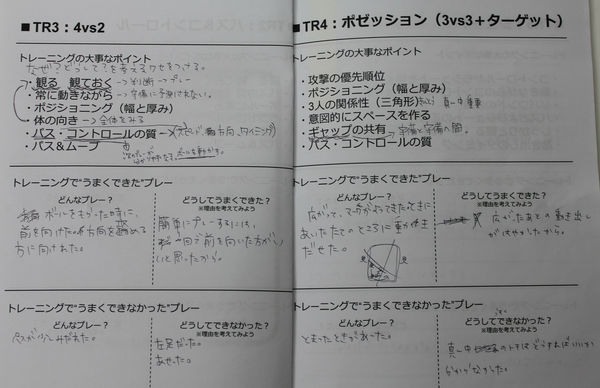 ■TR3：4vs2
トレーニングの大事なポイント
なぜ？どうして？を考えるクセをつける。
・観る 観ておく→判断→プレー
・常に動きながら→守備に予測されない。
・ポジショニング（幅と厚み）
・体の向き→全体をみる
・パス・コントロールの質→(スピード、方向、タイミング)
・パス＆ムーブ
トレーニングで“うまくできた”プレー
どんなプレー？
ボールをもった時に、
前を向けた。方向を
方に向けれた。
どうしてうまくできた？
※理由を考えてみよう
簡単にプレーするには、
回で前を向いた方がい
いと思ったから。
トレーニングで“うまくできなかった”プレー
どんなプレー？
パスが少しみだれた。
どうしてできなかった？
※理由を考えてみよう
左足だった。
あせった。
■TR4：ポゼッション（3vs3＋ターゲット）
トレーニングの大事なポイント
・攻撃の優先順位
・ポジショニング（幅と厚み）
・3人の関係性（三角形）真ん中重要
・意図的にスペースを作る
・ギャップの共有→守備と守備の間。
・パス・コントロールの質
トレーニングで“うまくできた”プレー
どんなプレー？
広がって、マークがついてきたときに
あいたたてのところに動き
だせた。
どうしてうまくできた？
※理由を考えてみよう
広がったあとの動き出し
がはやかったから。
トレーニングで“うまくできなかった”プレー
どんなプレー？
とまったときがあった。
どうしてできなかった？
※理由を考えてみよう
真ん中のときはどうすればいいか
わからなかった。